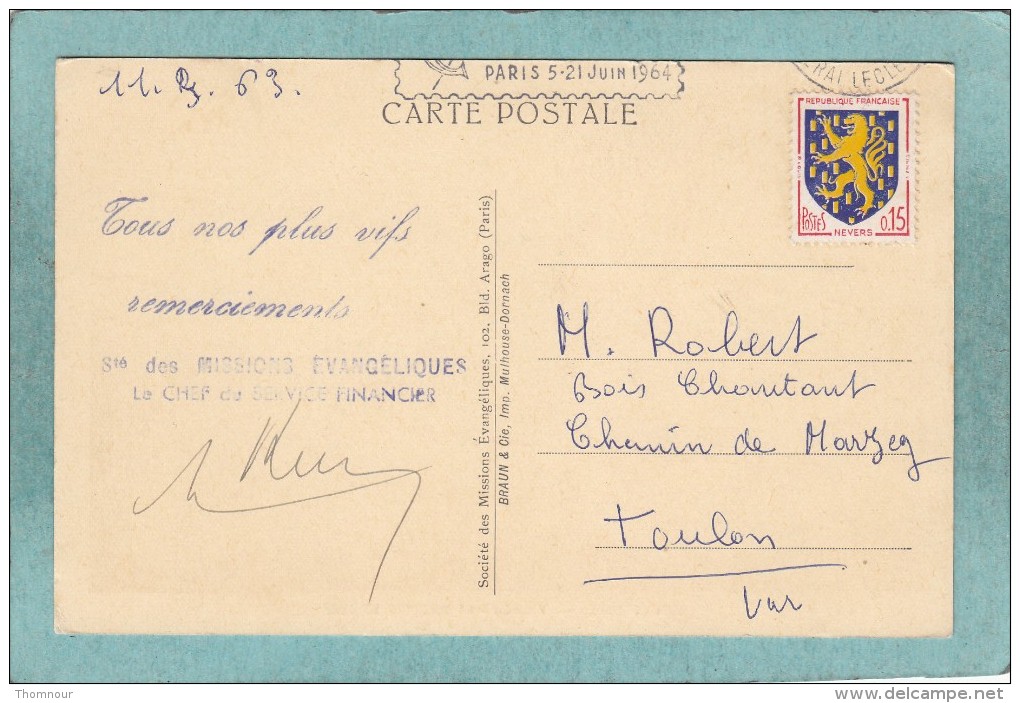 11. 63.
PARIS 5-21 JUIN 1964
CARTE POSTALE
REPUBLIQUE FRANCAISE
POSTES
0.15
NEVERS
Tous nos plus vifs
remerciements
Sté des MISSIONS ÉVANGÉLIQUES
Le CHEF du SERVICE FINANCIER
Société des Missions Évangéliques, 102, Bld. Arago (Paris)
BRAUN & Cie, Imp. Mulhouse-Dornach
M. Robert
Bois Chantant
Chemin de
Toulon
Var
Thomnour
delcampe.net